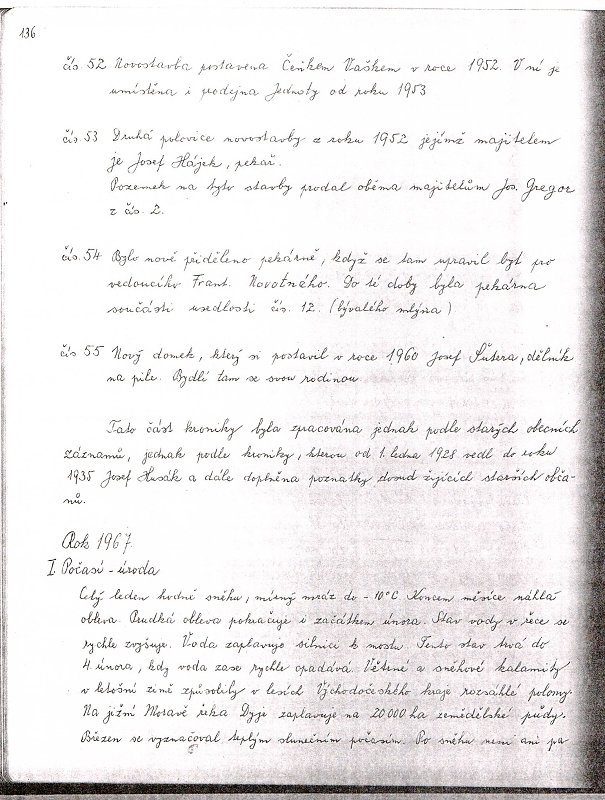 136
čís. 52 Novostavba postavena Čeňkem Vaškem v roce 1952. V ní je
umístěna i prodejna Jednoty od roku 1953
čís. 53 Druhá polovice novostavby z roku 1952 jejímž majitelem
je Josef Hájek, pekař.
Pozemek na tyto stavby prodal oběma majitelům Jos. Gregor
z čís. 2.
čís. 54 Bylo nově přiděleno pekárně, když se tam upravil byt pro
vedoucího Frant. Novotného. Do té doby byla pekárna
součástí usedlosti čís. 12. (bývalého mlýna)
čís 55 Nový domek, který si postavil v roce 1960 Josef Šutera, dělník
na pile. Bydlí tam se svou rodinou
Tato část kroniky byla zpracována jednak podle starých obecních
záznamů, jednak podle kroniky, kterou od 1. ledna 1928 vedl do roku
1935 Josef Husák a dále doplněna poznatky dosud žijících starších obča-
nů.
Rok 1967
I. Počasí - úroda
Celý leden hodně sněhu, mírný mráz do -10°C Koncem měsíce náhlá
obleva. Prudká obleva pokračuje i začátkem února. Stav vody v řece se
rychle zvyšuje. Voda zaplavuje silnici k mostu. Tento stav trvá do
4. února, kdy voda zase rychle opadává. Větrné a sněhové kalamity
v letošní zimě způsobily v lesích Východočeského kraje rozsáhlé polomy.
Na jižní Moravě řeka Dyje zaplavuje na 20 000 ha zemědělské půdy.
Březen se vyznačoval teplým slunečním počasím. Po sněhu není ani pa